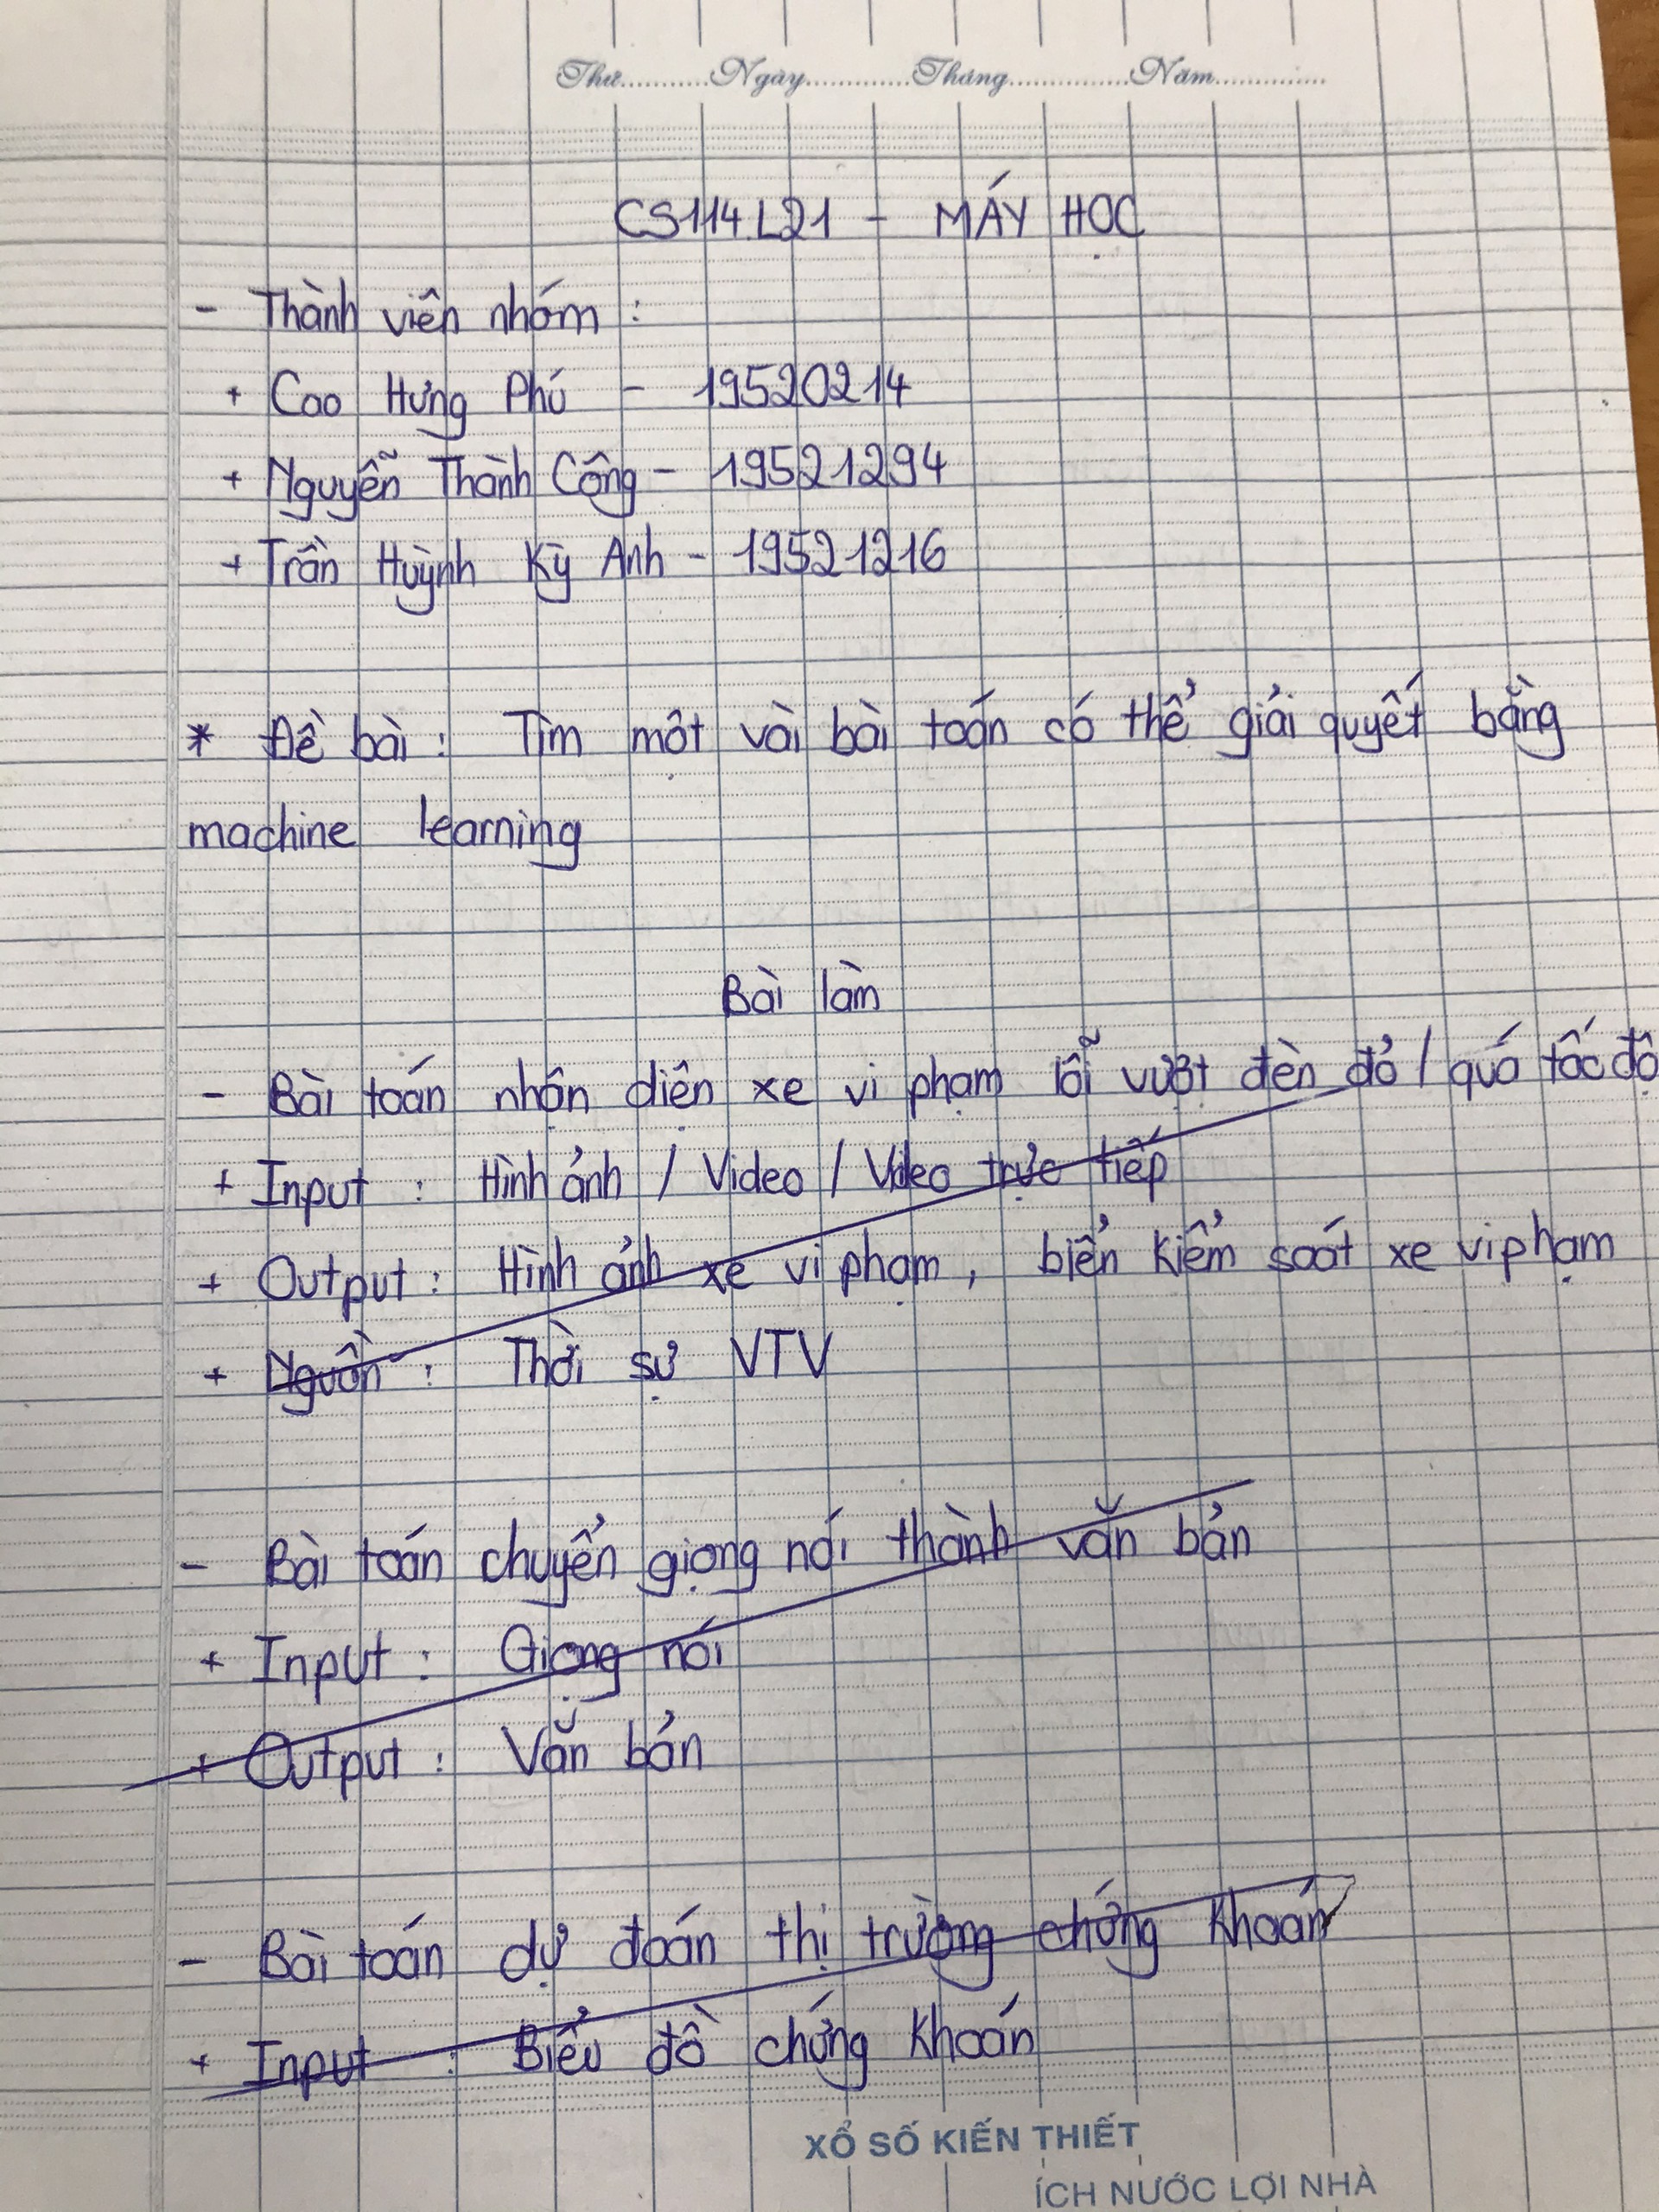 Thứ...........Ngày.............Tháng...............Năm..............
CS114.L21 - MÁY HỌC
- Thành viên nhóm :
+ Cao Hưng Phú - 19520214
+ Nguyễn Thành Công - 19521294
+ Trần Huỳnh Kỳ Anh - 19521216
* Đề bài : Tìm một vài bài toán có thể giải quyết bằng
machine learning
Bài làm
- Bài toán nhận diện xe vi phạm lỗi vượt đèn đỏ / quá tốc độ
+ Input : Hình ảnh / Video / Video trực tiếp
+ Output : Hình ảnh xe vi phạm, biển kiểm soát xe vi phạm
+ Nguồn : Thời sự VTV
- Bài toán chuyển giọng nói thành văn bản
+ Input : Giọng nói
+ Output : Văn bản
- Bài toán dự đoán thị trường chứng khoán
+ Input : Biểu đồ chứng khoán
XỔ SỐ KIẾN THIẾT
ÍCH NƯỚC LỢI NHÀ